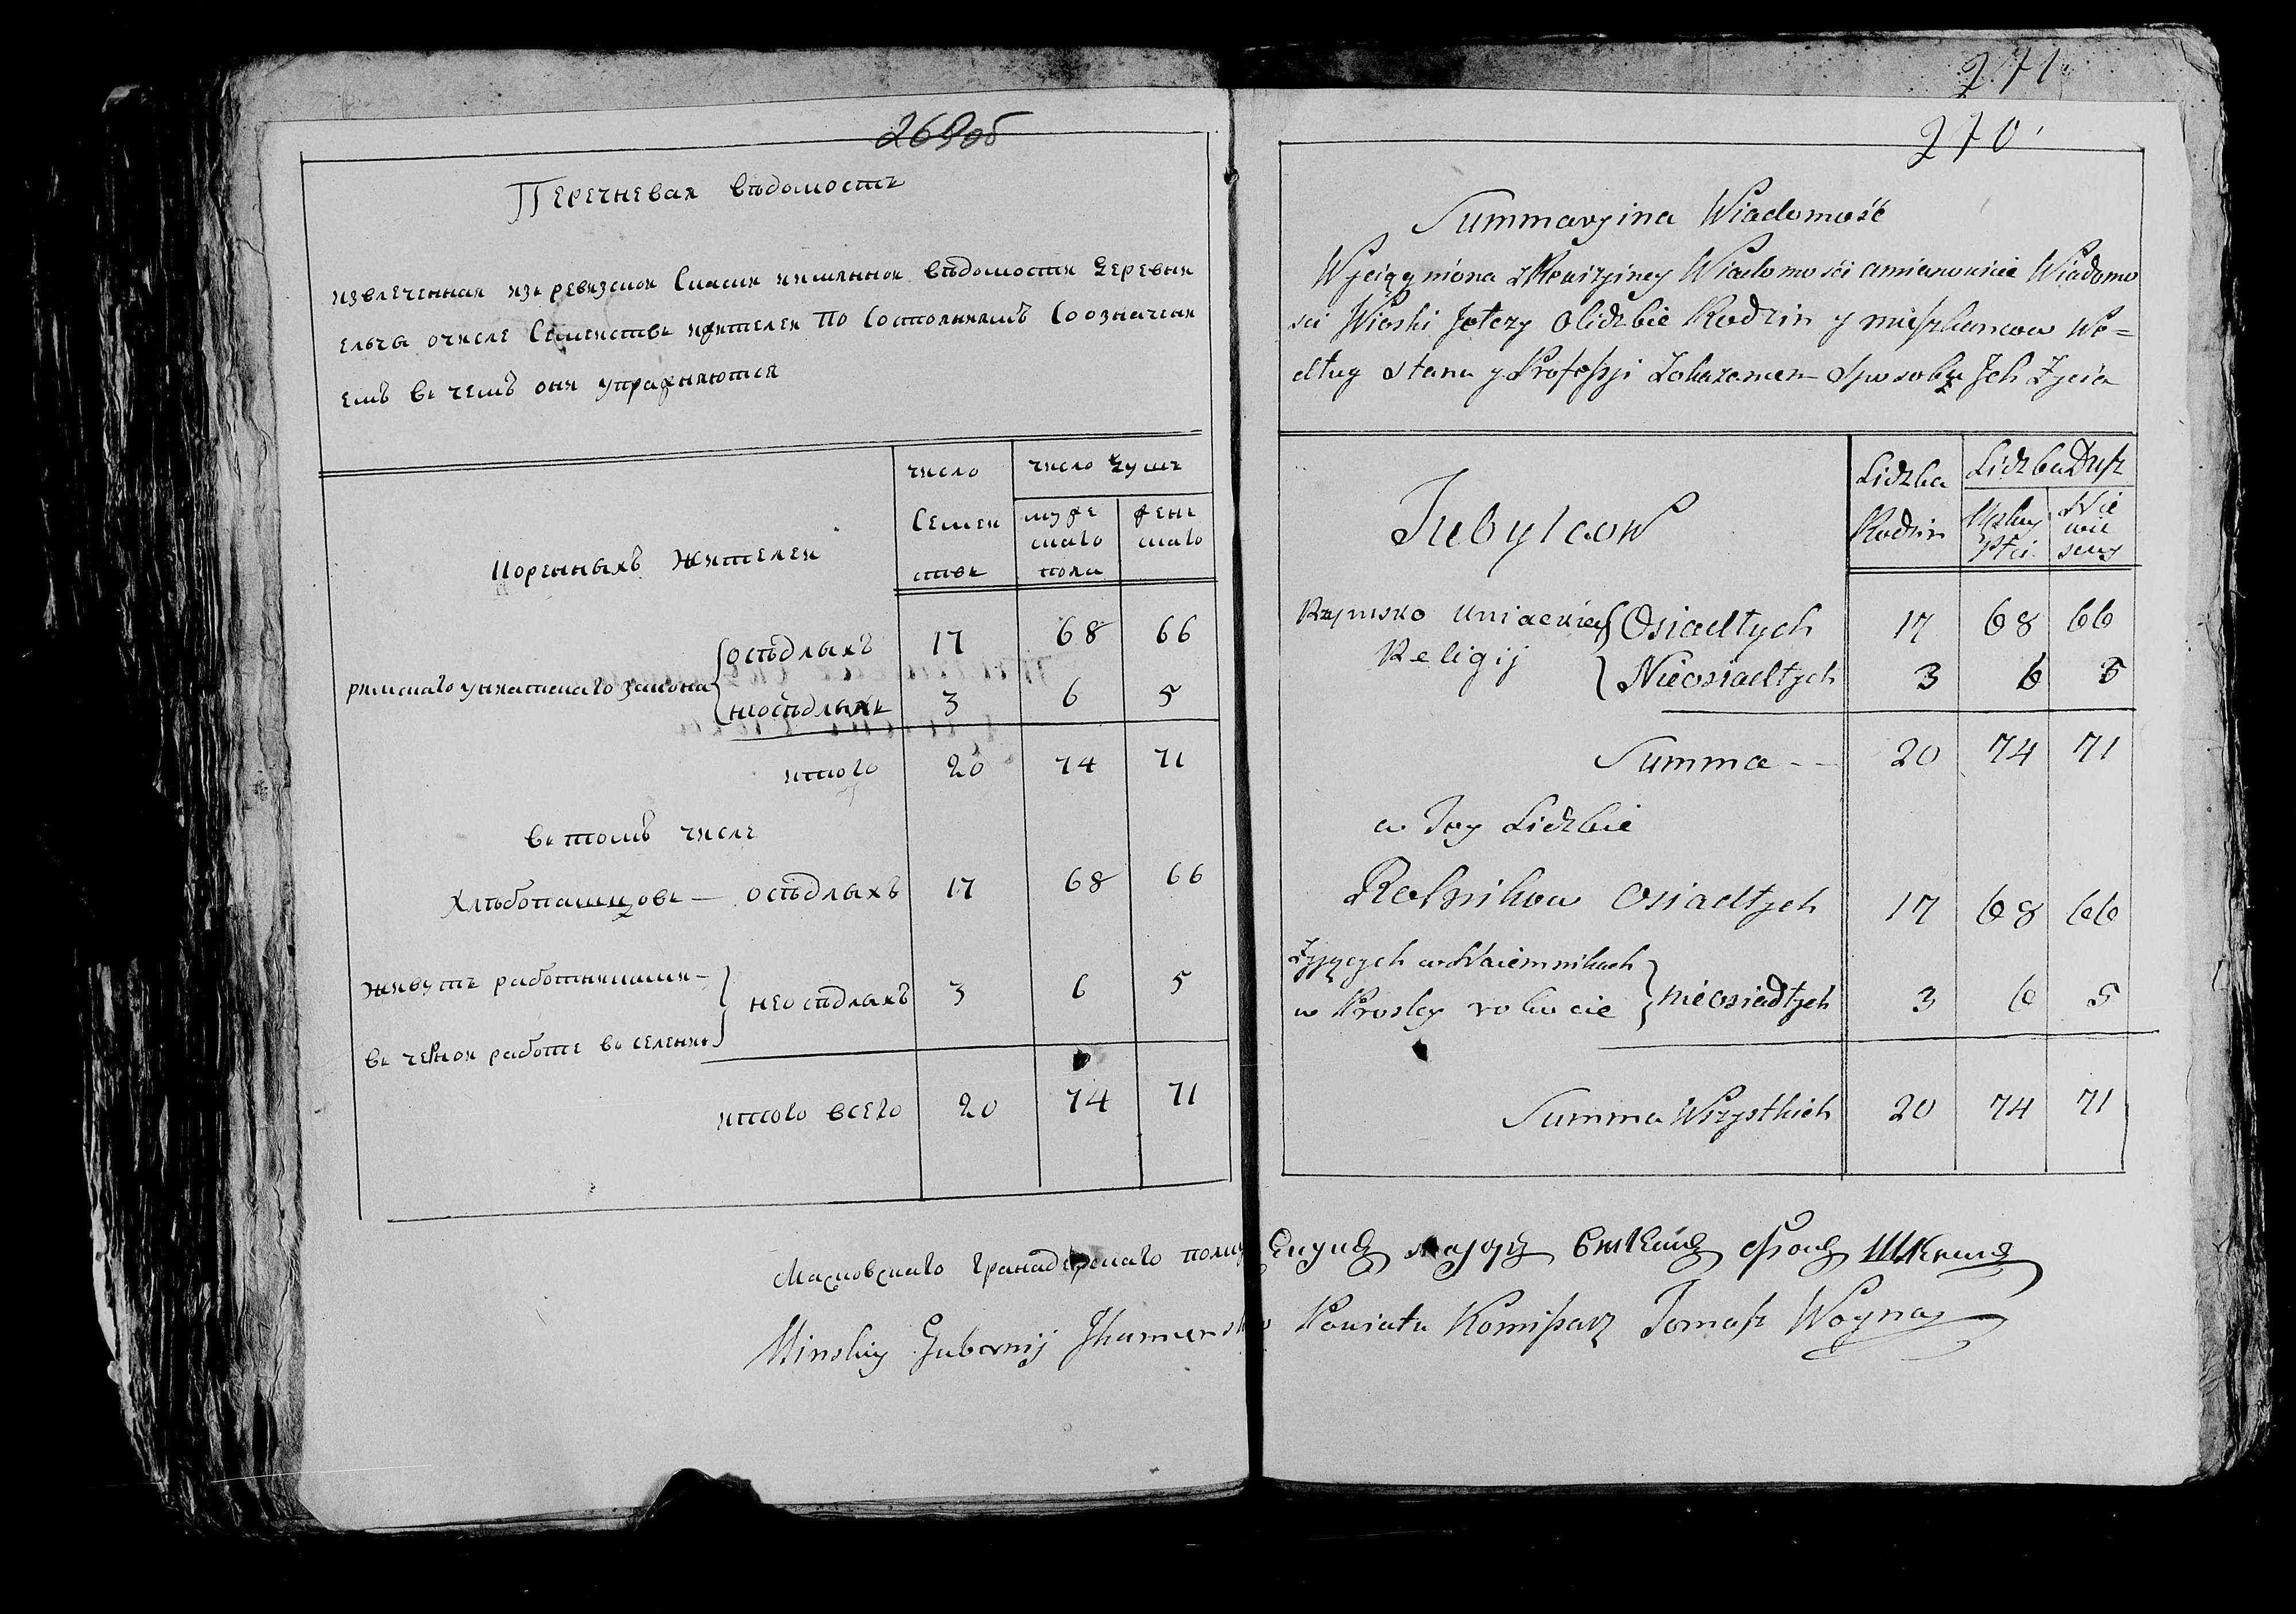 269об
Перечневая вѣдомость
извлеченная изь ревизской Скаски имянной вѣдомости Деревни
Ельчы очисле Семействь жителей по Состояниямъ Созначени
емъ вь чемъ они упражняются
число
Семей
ствь
число душь
муже
скаго
пола
жень
скаго
коренныхъ жителей
римскаго униатскаго закона
осѣдлыхъ 17 68 66
неосѣдлыхь 3 6 5
итого 20 74 71
вь томъ числе
хлѣбопашцовь — осѣдлыхъ 17 68 66
живуть работниками —
вь черной работе вь селении
неосѣдлыхъ 3 6 5
итого всего 20 74 71
271
270
Summaryina Wiadomość
Wyciągniona z Rewizyiney Wiadomości amianowicie Wiadomo
sci Wioski Jelczy Olidzbie Rodzin y mieszkancow We=
dług Stanu y Professji Zokazaniem Sposobu Jch Życia
Tubylcow
Lidzba
Rodzin
Lidzba Dusz
Męskiy
Płci
Nie
wie
sciey
Rzymsko Uniackiey
Religij
Osiadłych 17 68 66
Nieosiadłych 3 6 5
Summa -- 20 74 71
w Tey Lidzbie
Rolnikow Osiadłych 17 68 66
Żyjących w Naiemnikach
w Prostey robocie
nieosiadłych 3 6 5
Summa Wszystkich 20 74 71
Московскаго гранадерскаго полку Секунд маіоръ фон
Minskiy Gubernij Jhumenskego Powiatu Komissarz Tomasz Woyna